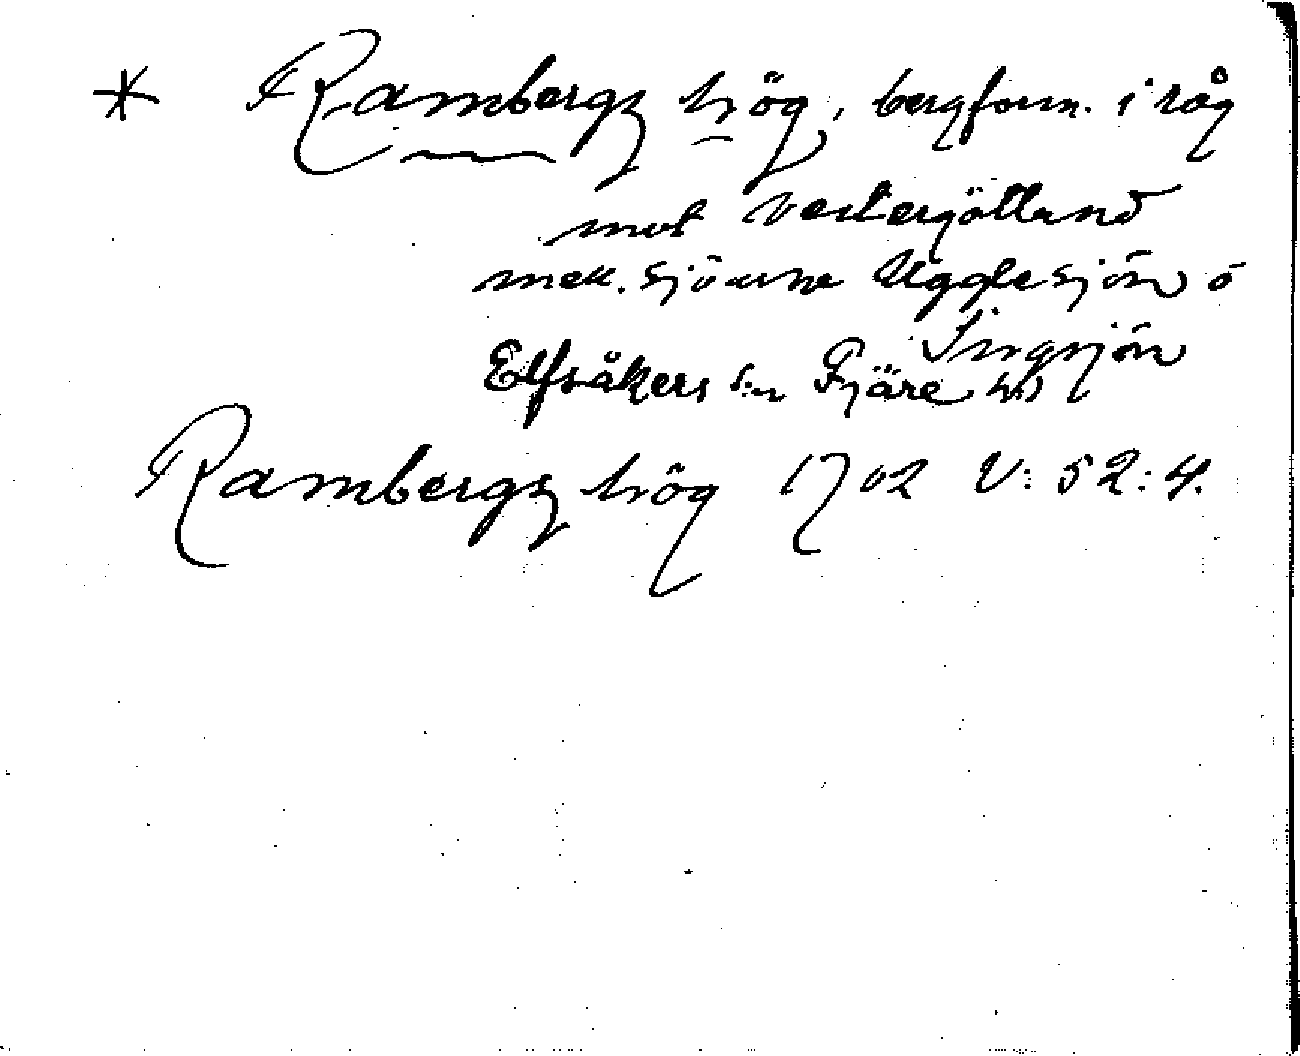 * Rambergs hög, bergform. i råg
mot Vestergötland
mell. sjöarne Ugglesjön o
Singsjön
Elfsåkers sn Fjäre hd
Rambergs hög 1702 V: 52:4.